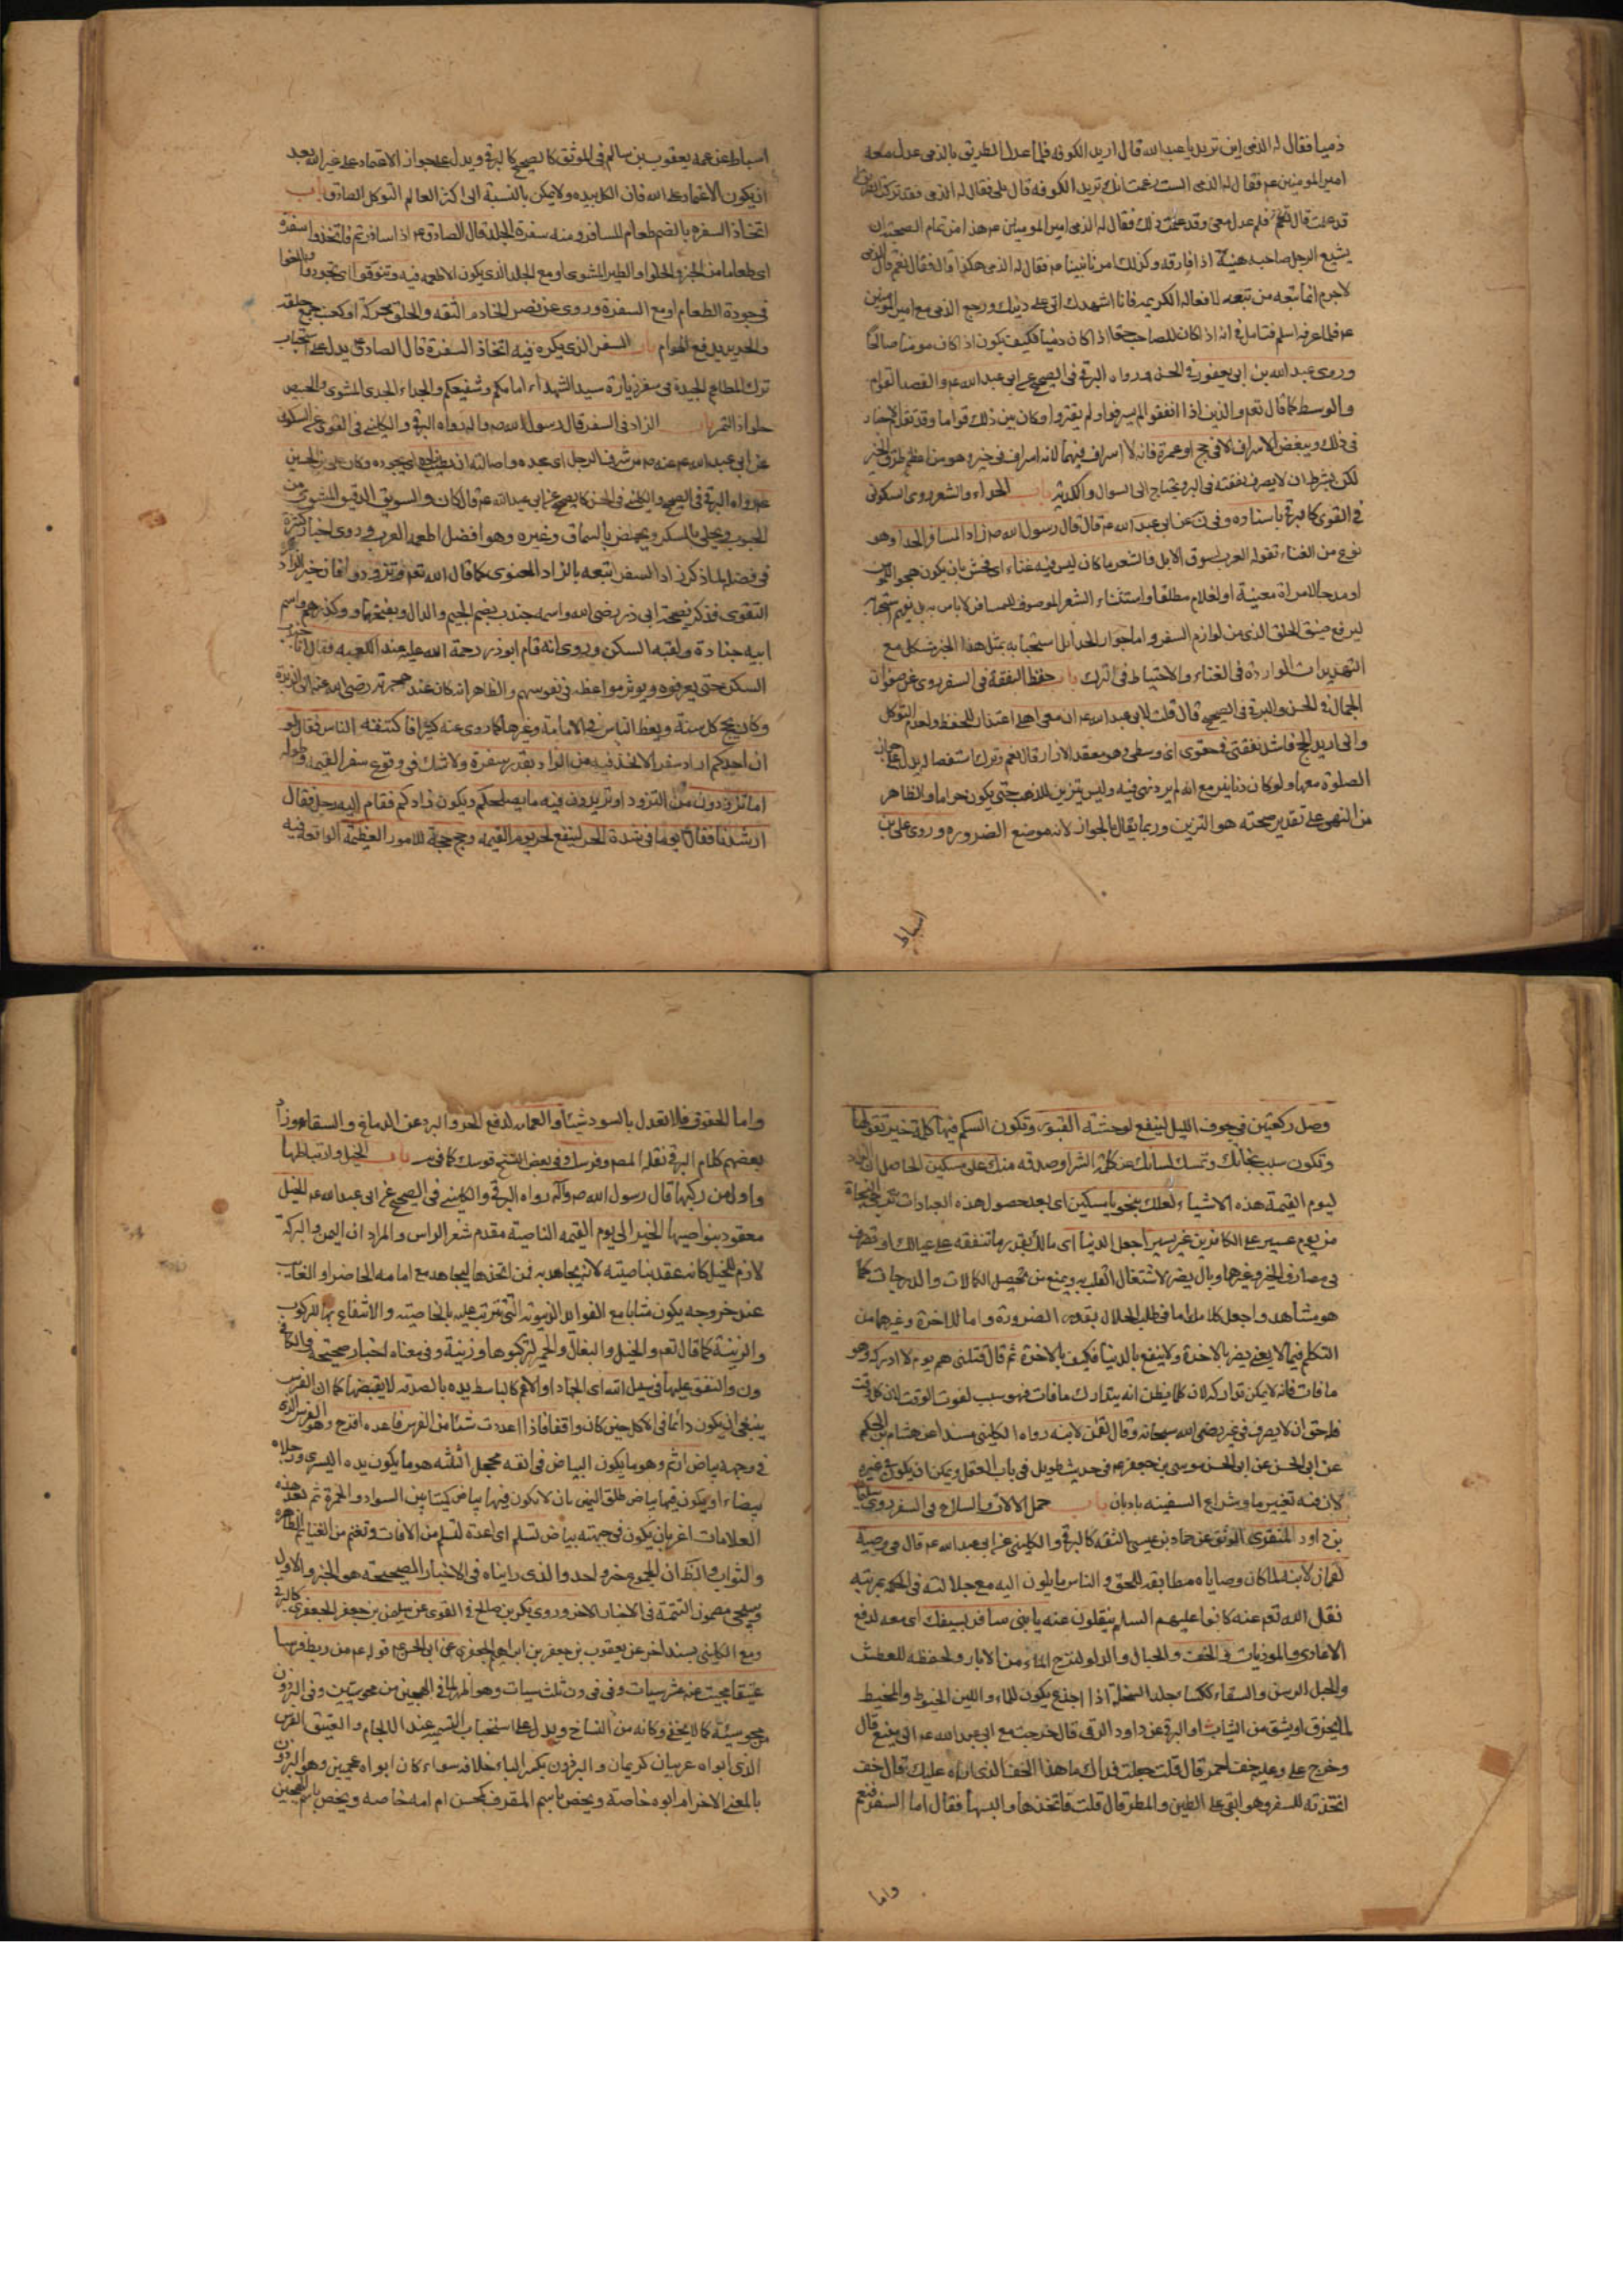 ذميا فقال له الذمى اين تريد يا عبد الله قال اريد الكوفه فلما عدل الطريق بالذمى عدل معه
امير المومنين عم فقال له الذمى الست زعمت انك تريد الكوفه قال بلى فقال له الذمى فقد تركت الطريق فقال
قد علمت قال فلم عدلت معى وقد علمت ذلك فقال له امير المومنين عم هذا من تمام الصحبة ان
يشيع الرجل صاحبه هنيئة اذا فارقه وكذلك امرنا نبينا عم فقال له الذمى هكذا قال فقال نعم قال الذمى
لاجرم انما تبعه من تبعه لافعاله الكريمه فانا اشهدك انى على دينك ورجع الذمى مع امير المومنين
عم فلما عرفه اسلم فتامل فى انه اذا كان للصاحب حقا اذا كان ذميا فكيف يكون اذا كان مومنا صالحا
وروى عبد الله بن ابى يعفور فى الحسن ورواه البرقى فى الصحيح عن ابى عبد الله عم والقصد القوام
والوسط كما قال تعم والذين اذا انفقوا لم يسرفوا ولم يقتروا وكان بين ذلك قواما وقد تقدم الاخبار
فى ذلك ويبغض الاسراف الا فى حج او عمرة فانه لا اسراف فيهما لانه اسراف فى خير وهو من اعظم طرق الخير
لكن بشرط ان لا يصرف نفقته فى البر ويحتاج الى السوال والكدية باب الحداء والشعر روى السكونى
فى القوى كالبرقى باسناده وفى ن عن ابى عبد الله عم قال قال رسول الله ص زاد المسافر الحدا وهو
نوع من الغناء تقوله العرب لسوق الابل والشعر ما كان ليس فيه غناء اى فحش بان يكون هجوا للمومن
او مدحا لامراة معينة او لغلام مطلقا واستثناء الشعر الموصوف للمسافر لا باس به بل نعيم استحبابه
ليرفع ضيق الخلق الذى من لوازم السفر واما جواز الحدا بل استحبابه بمثل هذا الخبر مشكل مع
التهديدات الواردة فى الغناء والاحتياط فى الترك باب حفظ النفقة فى السفر روى عن صفوان
الجمال فى الحسن والبرقى فى الصحيح قال قلت لابى عبد الله عم ان معى اهلى اعتذار للحفظ وعدم التوكل
وانى اريد الحج فاشد نفقتى فى حقوى اى وسطى وهو معقد الازار قال نعم وترك استفصاله يدل على جواز
الصلوة معها ولو كان دنانير مع انه لم يرد نهى فيه وليس بتزيين للذهب حتى يكون حراما والظاهر
من النهى على تقدير صحته هو التزين وربما يقال بالجواز لانه موضع الضروره وروى على بن
اسباط
اسباط عن عمه يعقوب بن سالم فى الموثق كالصحيح كالبرقى ويدل على جواز الاعتماد على غير الله بعد
ان يكون الاعتماد على الله فان الكل بيده ولا يمكن بالنسبة الى اكثر العالم التوكل الصادق باب
اتخاذ السفره بالضم طعام للمسافر ومنه سفرة الجلد قال الصادق عم اذا سافرتم فاتخذوا سفرة
اى طعاما من الخبز والحلوا والطير المشوى او مع الجلد الذى يكون الاطعمه فيه وتنوقوا اى تجودوا وبالغوا
فى جودة الطعام او مع السفرة وروى عن نصر الخادم الثقه والحلق محركة او كعنب جمع حلقه
والحديد يدفع الهوام باب السفر الذى يكره فيه اتخاذ السفرة قال الصادق عم يدل على استحباب
ترك المطاعم الجيدة فى سفر زيارة سيد الشهداء امامكم وشفيعكم والجداء الجدى المشوى والخبيص
حلواء التمر باب الزاد فى السفر قال رسول الله ص واله رواه البرقى والكلينى فى القوى عن السكونى
عن ابى عبد الله عم عنه ص من شرف الرجل اى مجده واصالته ان يطيب زاده اى يجوده وكان على بن الحسين
عم رواه البرقى فى الصحيح والكلينى فى الحسن كالصحيح عن ابى عبد الله عم قال كان والسويق الدقيق المشوى من
الحبوب ويحلى بالسكر ويحمض بالسماق وغيره وهو افضل اطعمة العرب وروى اخبار كثيرة
فى فضله لما ذكر زاد السفر اتبعه بالزاد المعنوى كما قال الله تعم وتزودوا فان خير الزاد
التقوى فذكر نصيحة ابى ذر رضى الله واسمه جندب بضم الجيم والدال وبفتحها ووكذرهم واسم
ابيه جنادة ولقبه السكن وروى انه قام ابو ذر رحمة الله عليه عند الكعبه فقال انا جندب بن
السكن حتى يعرفوه ويوثر مواعظه فى نفوسهم والظاهر انه كان عند
وكان يحج كل سنة ويعظ الناس فى الامامة وغيرها كما روى عنه كثيرا فاكتنفه الناس فقال لو
ان احدكم اراد سفرا لاتخذ فيه من الزاد بقدر سفرة ولا شك فى وقوع سفر القيمه وطوله
اما تزودون من التزود او تريدون فيه ما يصلحكم ويكون زادكم فقام اليه رجل فقال
ارشدنا فقال صم يوما فى شدة الحر لينفع لحر يوم القيمه وحج حجة للامور العظيمة الواقعة فيه
وصل ركعتين فى جوف الليل لينفع لوحشة القبور وتكون السكم فيها كلمة خير تقولها
وتكون سبب نجاتك وتمسك لسانك عن كلمة الشر او صدقه منك على مسكين الحاصل ان
ليوم القيمة هذه الاشياء لعلك بنجو يا مسكين اى بعد حصول هذه العبادات
من يوم عسير على الكافرين غير يسير اجعل الدنيا اى مالك بقدر ما تنفقه على عيالك او تصرف
فى مصارف الخير وغيرهما وبال يضر لاشتغال القلب به ويمنع من تحصيل الكمالات والدرجات كما
هو مشاهد واجعل كلامك اما فى طلب الحلال بقدر الضرورة واما للاخرة وغيرهما من
التكلم فيما لا يعنى يضر بالاخرة ولا ينفع بالدنيا فكيف بالاخرة ثم قال قتلنى هم يوم لا ادركه وهو
ما فات فانه لا يمكن تداركه لان كلما يظن انه يتدارك ما فات فهو سبب لفوت الوقت لان كل وقت
فله حق ان لا يصرف فى غير رضى الله سبحانه وقال لقمن لابنه رواه الكلينى مسندا عن هشام بن الحكم
عن ابى الحسن عن ابى الحسن موسى بن جعفر عم فى حديث طويل فى باب العقل ويمكن ان يكون غيره
لان فيه تغيير ما وشراع السفينه بادبان باب حمل الالات والسلاح فى السفر روى سليمان
بن داود المنقرى الموثق عن حماد بن عيسى الثقه كالبرقى والكلينى عن ابى عبد الله عم قال فى وصية
لقمان لابنه لما كان وصاياه مطابقه للحق والناس مايلون اليه مع جلالته فى الحكمه بمرتبه
نقل الله تعم عنه كانوا عليهم السلم ينقلون عنه يا بنى سافر بسيفك اى معه لدفع
الاعادى والموذيات والخف والحبال والدلو لنزح الماء من الابار ولحفظه للعطش
والحبل الرسن والسقاء ككساء جلد السخلة اذا اجذع يكون للماء واللبن الخيوط والمخيط
لما يخرق او يشق من الثياب والبرقى عن داود الرقى قال خرجت مع ابى عبد الله عم الى ينبع قال
وخرج على وعليه خف احمر قال قلت جعلت فداك ما هذا الخف الذى اراه عليك قال خف
اتخذته للسفر وهو ابقى على الطين والمطر قال قلت فاتخذها والبسها فقال اما السفر فنعم
واما
واما الحقوق فلا تعدل بالسود شيئا والعمامه لدفع الحر والبرد عن الدماغ والسقاء وزاد
بعضهم كلام البرقى نقله المص وفرسك وفى بعض النسخ قوسك كما فى سر باب الخيل وارتباطها
واول من ركبها قال رسول الله ص واله رواه البرقى والكلينى فى الصحيح عن ابى عبد الله عم الخيل
معقود بنواصيها الخير الى يوم القيمه الناصية مقدم شعر الراس والمراد ان اليمن والبركة
لازم للخيل كانه عقد بناصيته لانه يجاهد به فمن اتخذها ليجاهد مع امامه الحاضر او الغايب
عند خروجه يكون مثابا مع الفوايد الدنيوية التى تترتب عليه بالخاصية والانتفاع بها للركوب
والزينة كما قال تعم والخيل والبغال والحمير لتركبوها وزينة وفى معناه اخبار صحيحة فى الكافى
ون والمنفق عليها فى سبيل الله اى الجهاد او الاعم كالباسط يده بالصدقه لا يقبضها كما ان الفرس
ينبغى ان يكون دائما فى الاكل حين كان واقفا فاذا اعددت شيئا من الفرس فاعده اقرح وهو الفرس الذى
فى وجهه بياض ارثم وهو ما يكون البياض فى انفه محجل الثلثه هو ما يكون يده اليسرى ورجلاه
بيضاء او يكون فيها بياض طلق اليمين بان لا يكون فيها بياض كميتا بين السواد والحمرة ثم بعد هذه
العلامات اغر بان يكون فى جبهته بياض تسلم اى اعدة لتسلم من الافات وتغنم من الغنايم الظاهره
والثواب والظ ان المجموع خبر واحد والذى رايناه فى الاخبار الصحيحة هو الخبر والاول
وسيجى مضمون التتمة فى الاخبار الاخر وروى بكر بن صالح فى القوى عن سليمن بن جعفر الجعفرى كالبرقى
ومع الكلينى بسند اخر عن يعقوب بن جعفر بن ابراهيم الجعفرى عن ابى الحسن عم قوله عم من ربط فرسا
عتيقا محيت عنه عشر سيات وفى فى ون ثلث سيات وهو المراد فى الهجين من محو سيئتين وفى البرذون
محو سيئة كما لا يخفى وكانه من النساخ ويدل على استحباب التسمية عند اللجام والعتيق الفرس
الذى ابواه عربيان كريمان والبرذون بكسر الباء خلافه سواء كان ابواه عجميين وهو البرذون
بالمعنى الاخر ام ابوه خاصة ويخص باسم المقرف كمحسن ام امه خاصه ويخص باسم الهجين